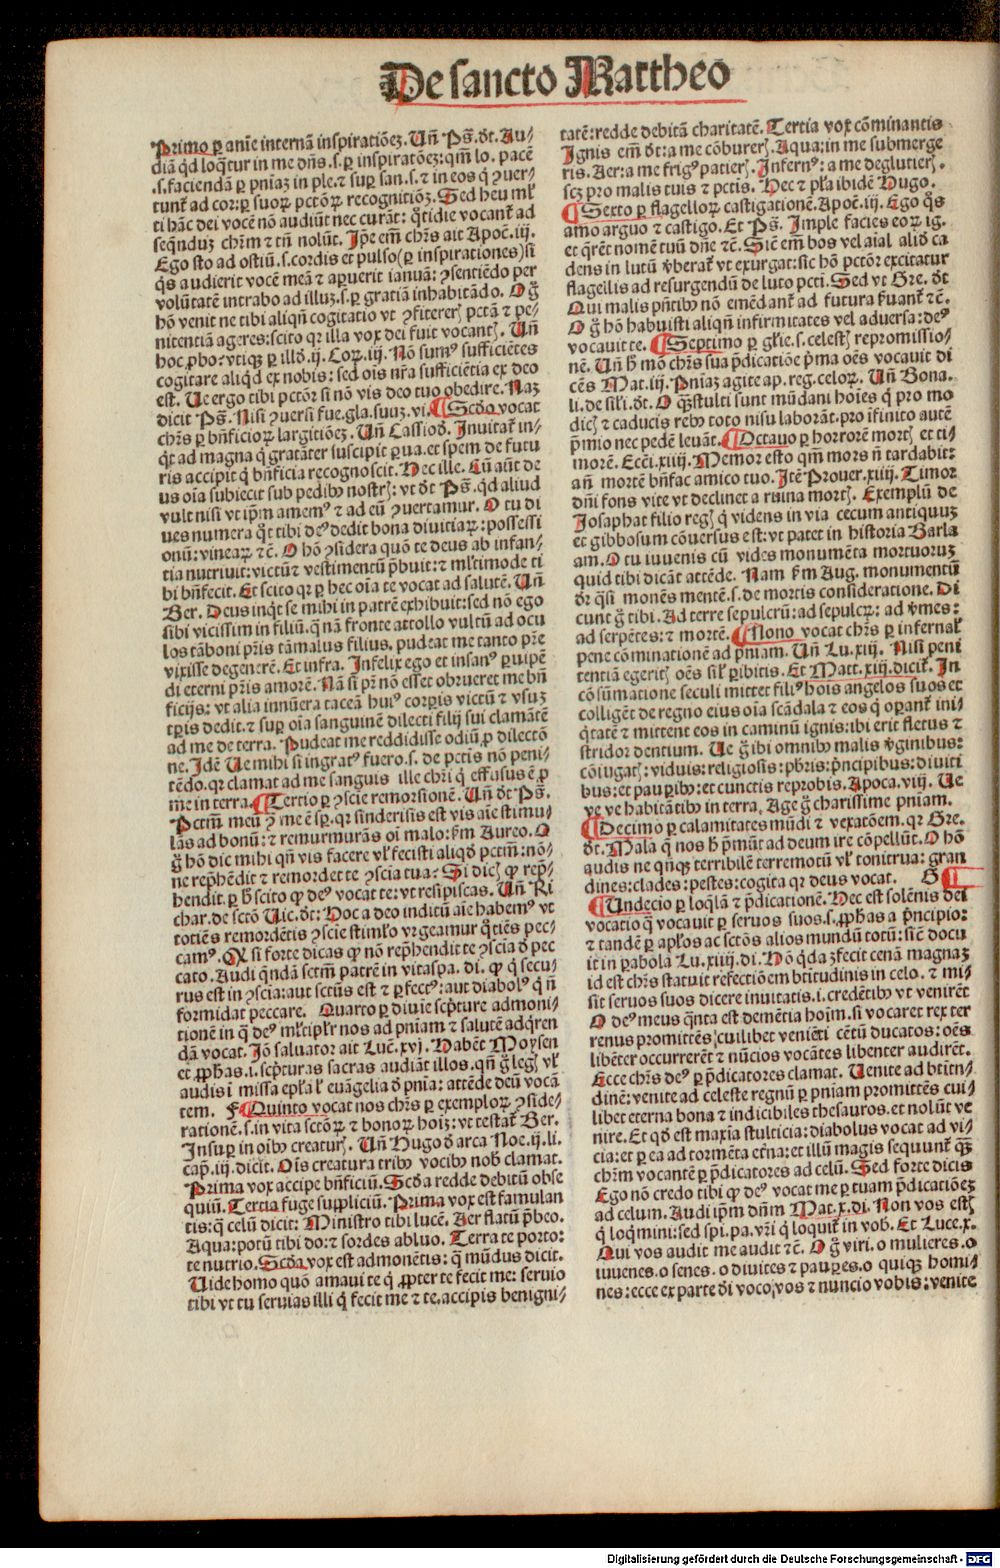 De sancto Mattheo
Primo ꝑ anīe internā inspiratiōeʒ. Uñ Pš. dt. Au⸗
diā qd loqͣtur in me dñs .s. ꝑ inspiratōeʒ: qm̄ lo. pacē
.s. faciendā ꝑ pnīaʒ in ple. ⁊ suꝑ san. s. ⁊ in eos q̇ ꝯuer⸗
tunt᷑ ad cor: ꝑ suoꝝ pctōꝝ recognitiōʒ. Sed heu ml̄
ti hāc dei vocē nō audiūt nec curāt: q̇tidie vocant᷑ ad
seqūduʒ chr̄m ⁊ tn̄ nolūt. Ip̄e em̄ chrs̄ ait Apoc̄. iij.
Ego sto ad ostiū .s. cordis et pulso (ꝑ inspirationes) si
q̇s audierit vocē meā ⁊ aꝑuerit ianuā: ꝯsentiēdo per
volūtatē intrabo ad illuʒ .s. ꝑ gratiā inhabitādo. O g̊
hō venit ne tibi aliqñ cogitatio vt ꝯfitererꝭ pctā ⁊ pe⸗
nitentiā ageres: scito qꝛ illa vox dei fuit vocantꝭ. Uñ
hoc ꝓbo: vtiqꝫ ꝑ illd̄ .ij. Coꝝ. iij. Nō sumꝰ sufficiētes
cogitare aliqd ex nobis: sed oīs nr̄a sufficiētia ex deo
est. Ue ergo tibi pctōr si nō vis deo tuo obedire. Naʒ
dicit Pš. Nisi ꝯuersi fue. gla. suuʒ. vi. ¶ Scd̄o vocat
chrs̄ ꝑ bn̄ficioꝝ largitiōeʒ. Uñ Cassiod. Inuitat᷑ in⸗
q̇t ad magna q̇ gratāter suscipit ꝑua. et spem de futu
ris accipit q̇ bn̄ficia recognoscit. Hec ille. Cū aūt de
us oīa subiecit sub pedibꝰ nostrꝭ: vt dt Pš. qd aliud
vult nisi vt ip̄m amemꝰ ⁊ ad eū ꝯuertamur. O tu di
ues numera q̊t tibi deꝰ dedit bona diuitiaꝝ: possessi
onū: vineaꝝ ⁊c̄. O hō ꝯsidera quō te deus ab infan⸗
tia nutriuit: victū ⁊ vestimentū p̄buit: ⁊ ml̄timode ti
bi bn̄fecit. Et scito qꝛ ꝑ hec oīa te vocat ad salutē. Uñ
Ber. Deus inq̇t se mihi in patrē exhibuit: sed nō ego
sibi vicissim in filiū. q̄ nā fronte attollo vultū ad ocu
los tā boni pr̄is tā malus filius. pudeat me tanto pr̄e
vixisse degenerē. Et infra. Infelix ego et insanꝰ ꝑuipē
di eterni pr̄is amorē. Nā si pr̄ nō esset obrueret me bñ
ficijs: vt alia innūera taceā huiꝰ corꝑis victū ⁊ vsuʒ
tꝑis dedit. ⁊ suꝑ oīa sanguinē dilecti filij sui clamātē
ad me de terra. Pudeat me reddidisse odiū ꝓ dilectō
ne. Idē Ue mihi si ingratꝰ fuero .s. de pctis nō peni⸗
tēdo. qꝛ clamat ad me sanguis ille chr̄i q̇ effusus ē ꝓ
me in terra. ¶ Tertio ꝑ ꝯscie remorsionē. Uñ dt Pš.
Pctm̄ meū ꝯ me ē sꝑ. qꝛ sinderisis est vis aīe stimu⸗
lās ad bonū: ⁊ remurmurās oī malo: ẜm Aureo. O
g̊ hō dic mihi qñ vis facere vl̄ fecisti aliqd pctm̄: nō⸗
ne rep̄hēdit ⁊ remordet te ꝯscia tua? Si dicꝭ ꝙ rep̄⸗
hendit. ꝑ h̄ scito ꝙ deꝰ vocat te: vt resipiscas. Uñ Ri
char. de sctō Uic. dt: Hoc a deo inditū aīe habemꝰ vt
totiēs remordētis ꝯscie stimlo vrgeamur q̊tiēs pec⸗
camꝰ. Qꝫ si forte dicas ꝙ nō rep̄hendit te ꝯscia d pec
cato. Audi quādā sctm̄ patrē in vitaspa. di. ꝙ q̇ secu⸗
rus est in ꝯscia: aut sctūs est ⁊ ꝑfectꝰ: aut diabolꝰ q̇ ñ
formidat peccare. Quarto ꝑ diuīe scpture admoni⸗
tionē in q̄ deꝰ ml̄cipl̄r nos ad pnīam ⁊ salutē adq̇ren
dā vocat. Iō saluator ait Luc̄. xvj. Habēt Moysen
et ꝓphas .i. scp̄turas sacras audiāt illos. qñ g̊ legꝭ vl̄
audis ī missa epl̄a l᷑ euāgelia d pnīa: attēde deū vocā
tem. F ¶ Quinto vocat nos chrs̄ ꝑ exemploꝝ ꝯside⸗
rationē .s. in vita sctōꝝ ⁊ bonoꝝ hoīʒ: vt testat᷑ Ber.
Insuꝑ in oībꝰ creaturꝭ. Uñ Hugo d arca Noe .ij. li.
cap̄. iij. dicit. Oīs creatura tribꝰ vocibꝰ nob̄ clamat.
Prima vox accipe bn̄ficiū. Scd̄a redde debitū obse
quiū. Tertia fuge suppliciū. Prima vox est famulan
tis: q̄ celū dicit: Ministro tibi lucē. Aer flatū p̄beo.
Aqua: potū tibi do: ⁊ sordes abluo. Terra te porto:
te nutrio. Scd̄a vox est admonētis: q̄ mūdus dicit.
Uide homo quō amaui te q̇ ꝓpter te fecit me: seruio
tibi vt tu seruias illi q̇ fecit me ⁊ te. accipis benigni⸗
tatē: redde debitā charitatē. Tertia vox cōminantis
Ignis em̄ dt: a me cōburerꝭ. Aqua: in me submerge
ris. Aer: a me frigꝰ patierꝭ. Infernꝰ: a me deglutierꝭ.
scʒ pro malis tuis ⁊ pctis. Hec ⁊ pl̄a ibidē Hugo.
¶ Sexto ꝑ flagelloꝝ castigationē. Apoc̄. iij. Ego q̇s
amo arguo ⁊ castigo. Et Pš. Imple facies eoꝝ ig.
et q̄rēt nomē tuū dn̄e ⁊c̄. Sic̄ em̄ bos vel aīal aliud ca
dens in lutū v̄berat᷑ vt exurgat: sic hō pctōr excitatur
flagellis ad resurgendū de luto pcti. Sed vt Gre. dt
Qui malis pn̄tibꝰ nō emēdant᷑ ad futura ẜuant᷑ ⁊c̄.
O g̊ hō habuisti aliqñ infirmitates vel aduersa: deꝰ
vocauit te. ¶ Septimo ꝑ gl̄ie .s. celestꝭ repromissio⸗
nē. Uñ h̄ mō chrs̄ sua p̄dicatiōe p̄ma oēs vocauit di
cēs Mat. iij. Pnīaʒ agite ap. reg. celoꝝ. Uñ Bona.
li. de sil̄i. dt. O q̄ʒ stulti sunt mūdani hoīes q̇ pro mo
dicꝭ ⁊ caducis rebꝰ toto nisu laborāt. pro īfinito autē
p̄mio nec pedē leuāt. ¶ Octauo ꝑ horrorē mortꝭ et ti⸗
morē. Ecci. xiiij. Memor esto qm̄ mors ñ tardabit:
añ mortē bn̄fac amico tuo. Itē Prouer. xiiij. Timor
dn̄i fons vite vt declinet a ruina mortꝭ. Exemplū de
Josaphat filio regꝭ q̇ videns in via cecum antiquuʒ
et gibbosum cōuersus est: vt patet in historia Barla
am. O tu iuuenis cū vides monumēta mortuoruʒ
quid tibi dicāt attēde. Nam ẜm Aug. monumentū
dr̄ qsi monēs mentē .s. de mortis consideratione. Di
cunt g̊ tibi. Ad terre sepulcrū: ad sepulcꝝ: ad v̄mes:
ad serpētes: ⁊ mortē. ¶ Nono vocat chrs̄ ꝑ infernal᷑
pene cōminationē ad pnīam. Uñ Lu. xiij. Nisi peni
tentiā egeritꝭ oēs sil᷑ ꝑibitis. Et Matt. xiij. dicit᷑. In
cōsūmatione seculi mittet filiꝰ hoīs angelos suos et
colligēt de regno eius oīa scādala ⁊ eos q̇ oꝑant᷑ ini⸗
q̇tatē ⁊ mittent eos in caminū ignis: ibi erit fletus ⁊
stridor dentium. Ue g̊ ībi omnibꝰ malis v̄ginibus:
cōiugatꝭ: viduis: religiosis: pb̄ris: p̄ncipibus: diuiti
bus: et pauꝑibꝰ: et cunctis reprobis. Apoca. viij. Ue
ve ve habitātibꝰ in terra, Age g̊ charissime pnīam.
¶ Decimo ꝑ calamitates mūdi ⁊ vexatōem. qꝛ Gre.
dt. Mala q̄ nos h̄ p̄mūt ad deum ire cōpellūt. O hō
audis ne qñqꝫ terribilē terremotū vl̄ tonitrua: gran
dines: clades: pestes: cogita qꝛ deus vocat. G ¶
¶ Undecīo ꝑ loqͣlā ⁊ p̄dicationē. Hec est solēnis dei
vocatio q̄ vocauit ꝑ seruos suos .s. ꝓphas a p̄ncipio:
⁊ tandē ꝑ aplōs ac sctōs alios mundū totū: sic̄ docu
it in ꝑabola Lu. xiiij. di. Hō q̇dā ꝫ fecit cenā magnaʒ
id est chrs̄ statuit refectiōem bt̄itudinis in celo. ⁊ mi⸗
sit seruos suos dicere inuitatis .i. credētibꝰ vt venirēt
O deꝰ meus q̄nta est demētia hoīm. si vocaret rex ter
renus promittēs cuilibet veniēti cētū ducatos: oēs
libēter occurrerēt ⁊ nūcios vocātes libenter audirēt.
Ecce chrs̄ deꝰ ꝑ p̄dicatores clamat. Uenite ad bt̄itu⸗
dinē: venite ad celeste regnū ꝑ pnīam promittēs cui⸗
libet eterna bona ⁊ indicibiles thesauros. et nolūt ve
nire. Et qd est maxīa stulticia: diabolus vocat ad vi⸗
cia: et ꝑ ea ad tormēta et̄na: et illū magis sequunt᷑ q̄ʒ
chr̄m vocantē ꝑ p̄dicatores ad celū. Sed forte dicis
Ego nō credo tibi ꝙ deꝰ vocat me ꝑ tuam p̄dicatiōeʒ
ad celum. Audi ip̄m dn̄m Mat. x. di. Non vos estꝭ
q̇ loqͥmini: sed spi. pa. vr̄i q̇ loquit᷑ in vob. Et Luce. x.
Qui vos audit me audit ⁊c̄. O g̊ viri. o mulieres. o
iuuenes. o senes. o diuites ⁊ pauꝑes. o quiqꝫ homi⸗
nes: ecce ex parte dī voco, vos ⁊ nuncio vobis: venite
Digitalisierung gefördert durch die Deutsche Forschungsgemeinschaft - DFG